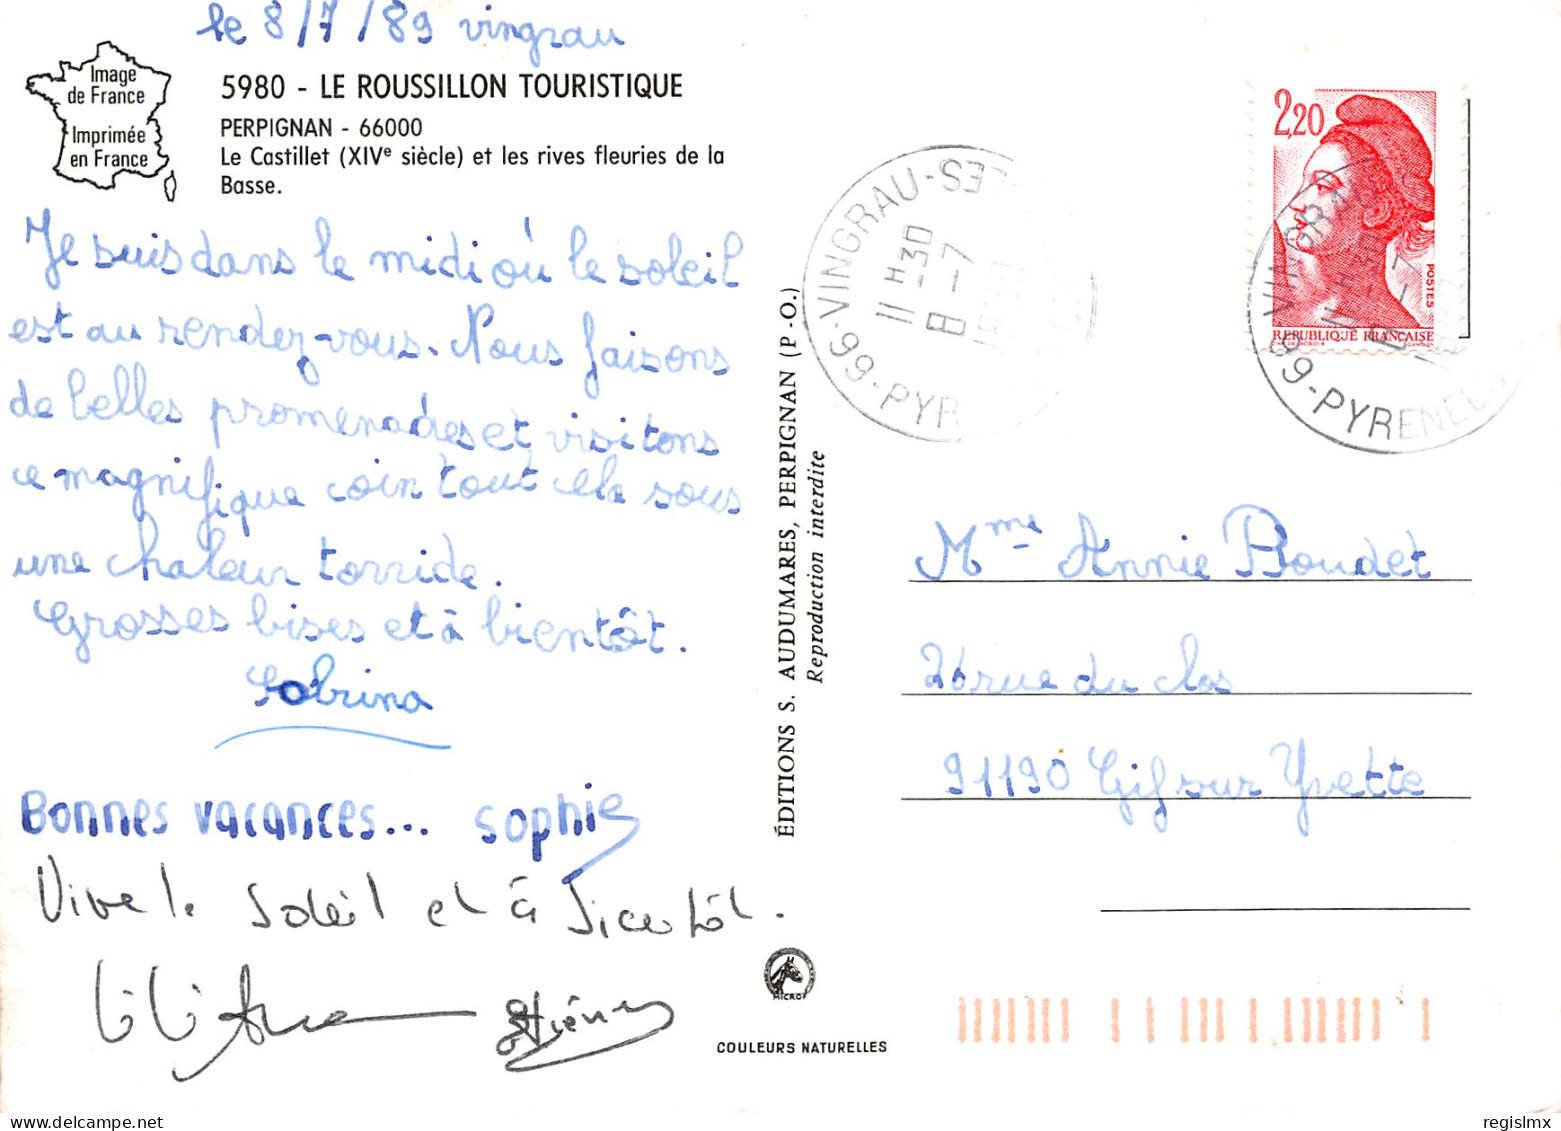 le 8/7/89 vingrau
Image
de France
Imprimée
en France
5980 - LE ROUSSILLON TOURISTIQUE
PERPIGNAN - 66000
Le Castillet (XIVe siècle) et les rives fleuries de la
Basse.
Je suis dans le midi où le soleil
est au rendez-vous. Nous faisons
de belles promenades et visitons
ce magnifique coin tout cela sous
une chaleur torride.
Grosses bises et à bientôt.
Sabrina
Bonnes vacances... sophie
Vive le soleil et à bientôt.
ÉDITIONS S. AUDUMARES, PERPIGNAN (P.-O.)
Reproduction interdite
MICRO
COULEURS NATURELLES
VINGRAU-LES-
11H30
8-7
66-PYR
2,20
POSTES
REPUBLIQUE FRANÇAISE
VINGRAU
11H30
8-7
66-PYRENEES
Mme Annie Boudet
26 rue du clos
91190 Gif sur Yvette
regislmx